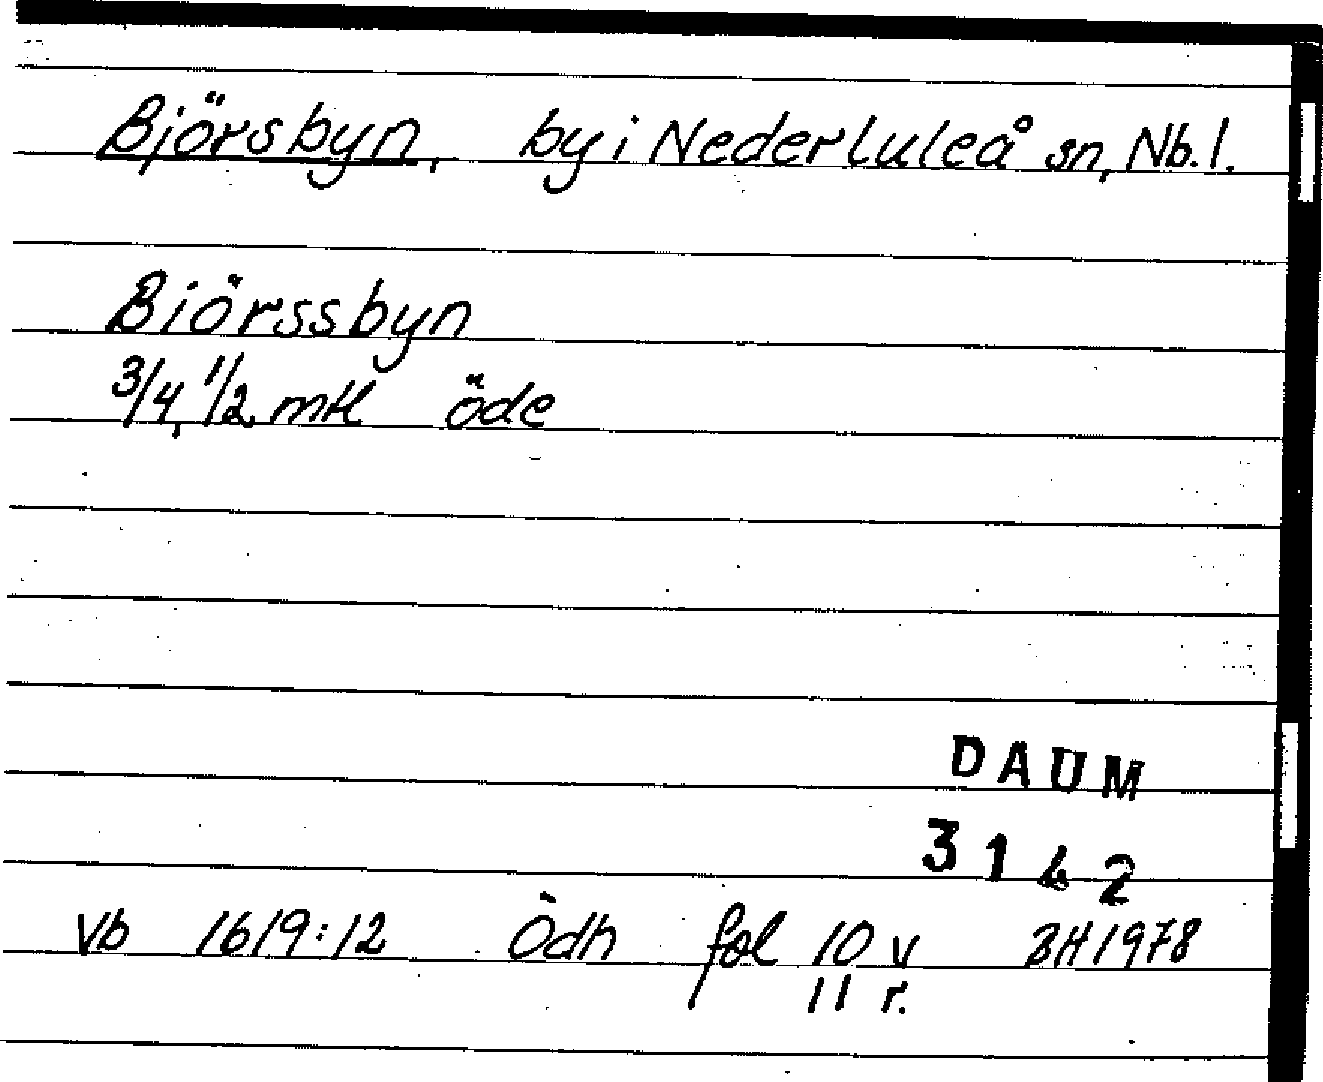 Björsbyn, by i Nederluleå sn, Nb. l.
Biörssbyn
3/4, 1/2 mtl öde
DAUM
3142
Vb 1619:12 Ödh fol 10 v BH 1978
11 r.